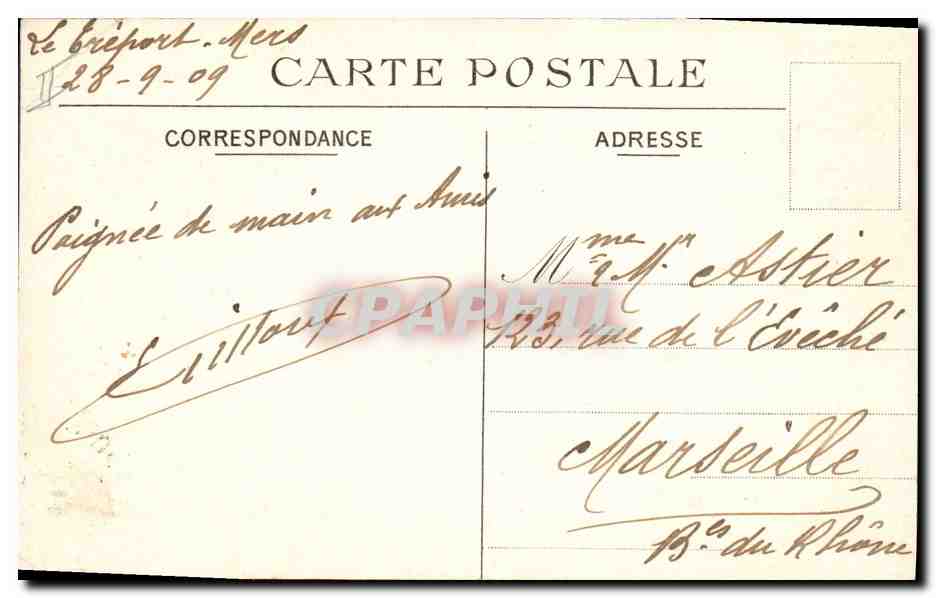 Le Tréport-Mers
II 28-9-09
CARTE POSTALE
CORRESPONDANCE
ADRESSE
Poignée de main aux Amis
Mme & Mr Astier
123, rue de l'Evêché
Marseille
Bes du Rhône
CPAPHIL